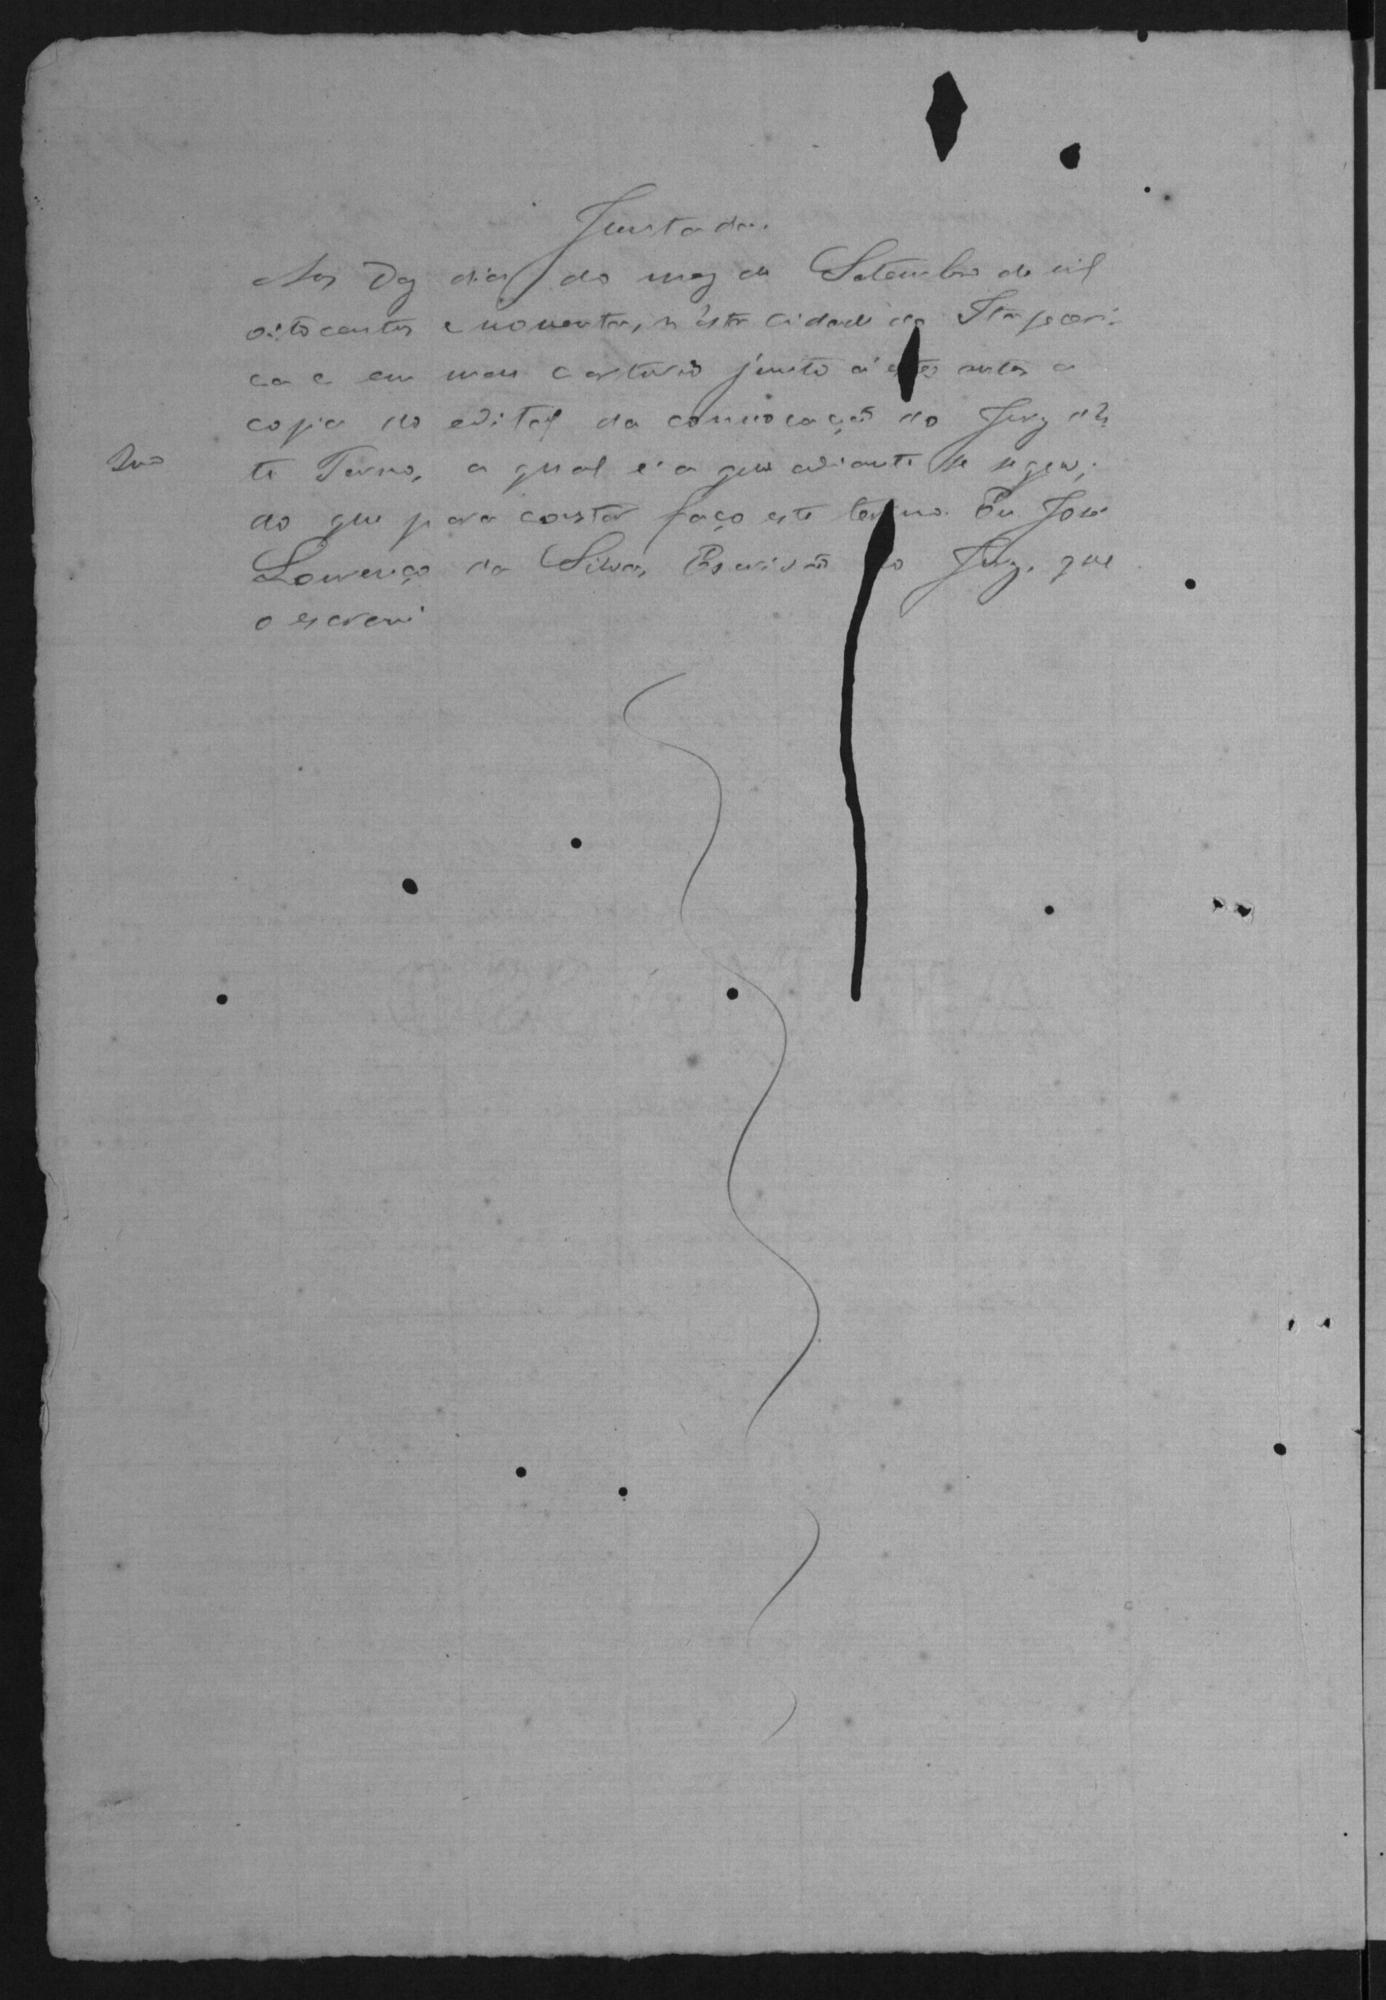 Juntada.
Aos Dez dias do mez de Setembro de mil
oitocentos e noventa, n'esta cidade de Itapeceri-
ca e em meu cartorio junto á estes autos a
copia do edital da convocação do Jury des-
te Termo, a qual é a que adiante se segue;
do que para constar faço este termo. Eu José
Lourenço da Silva, Escrivão do Jury, que
o escrevi